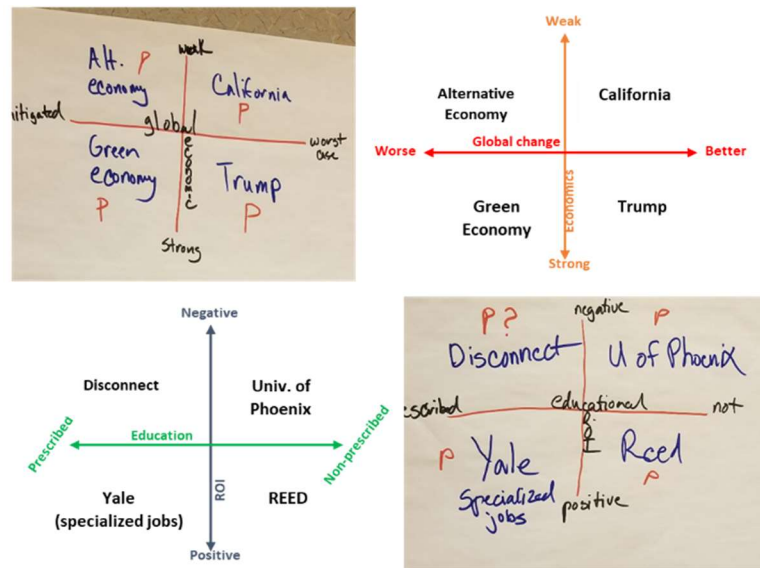 weak
Alt. P
economy
California
P
nitigated
global
worst
case
economic
Green
economy
Trump
P
P
Strong
Weak
Alternative
Economy
California
Global change
Worse
Better
Economics
Green
Economy
Trump
Strong
Negative
Disconnect
Univ. of
Phoenix
Education
Prescribed
Non-prescribed
ROI
Yale
(specialized jobs)
REED
Positive
P ?
negative
P
Disconnect
U of Phoenix
escribed
educational
not
ROI
P
Yale
Reed
P
Specialized
jobs
positive